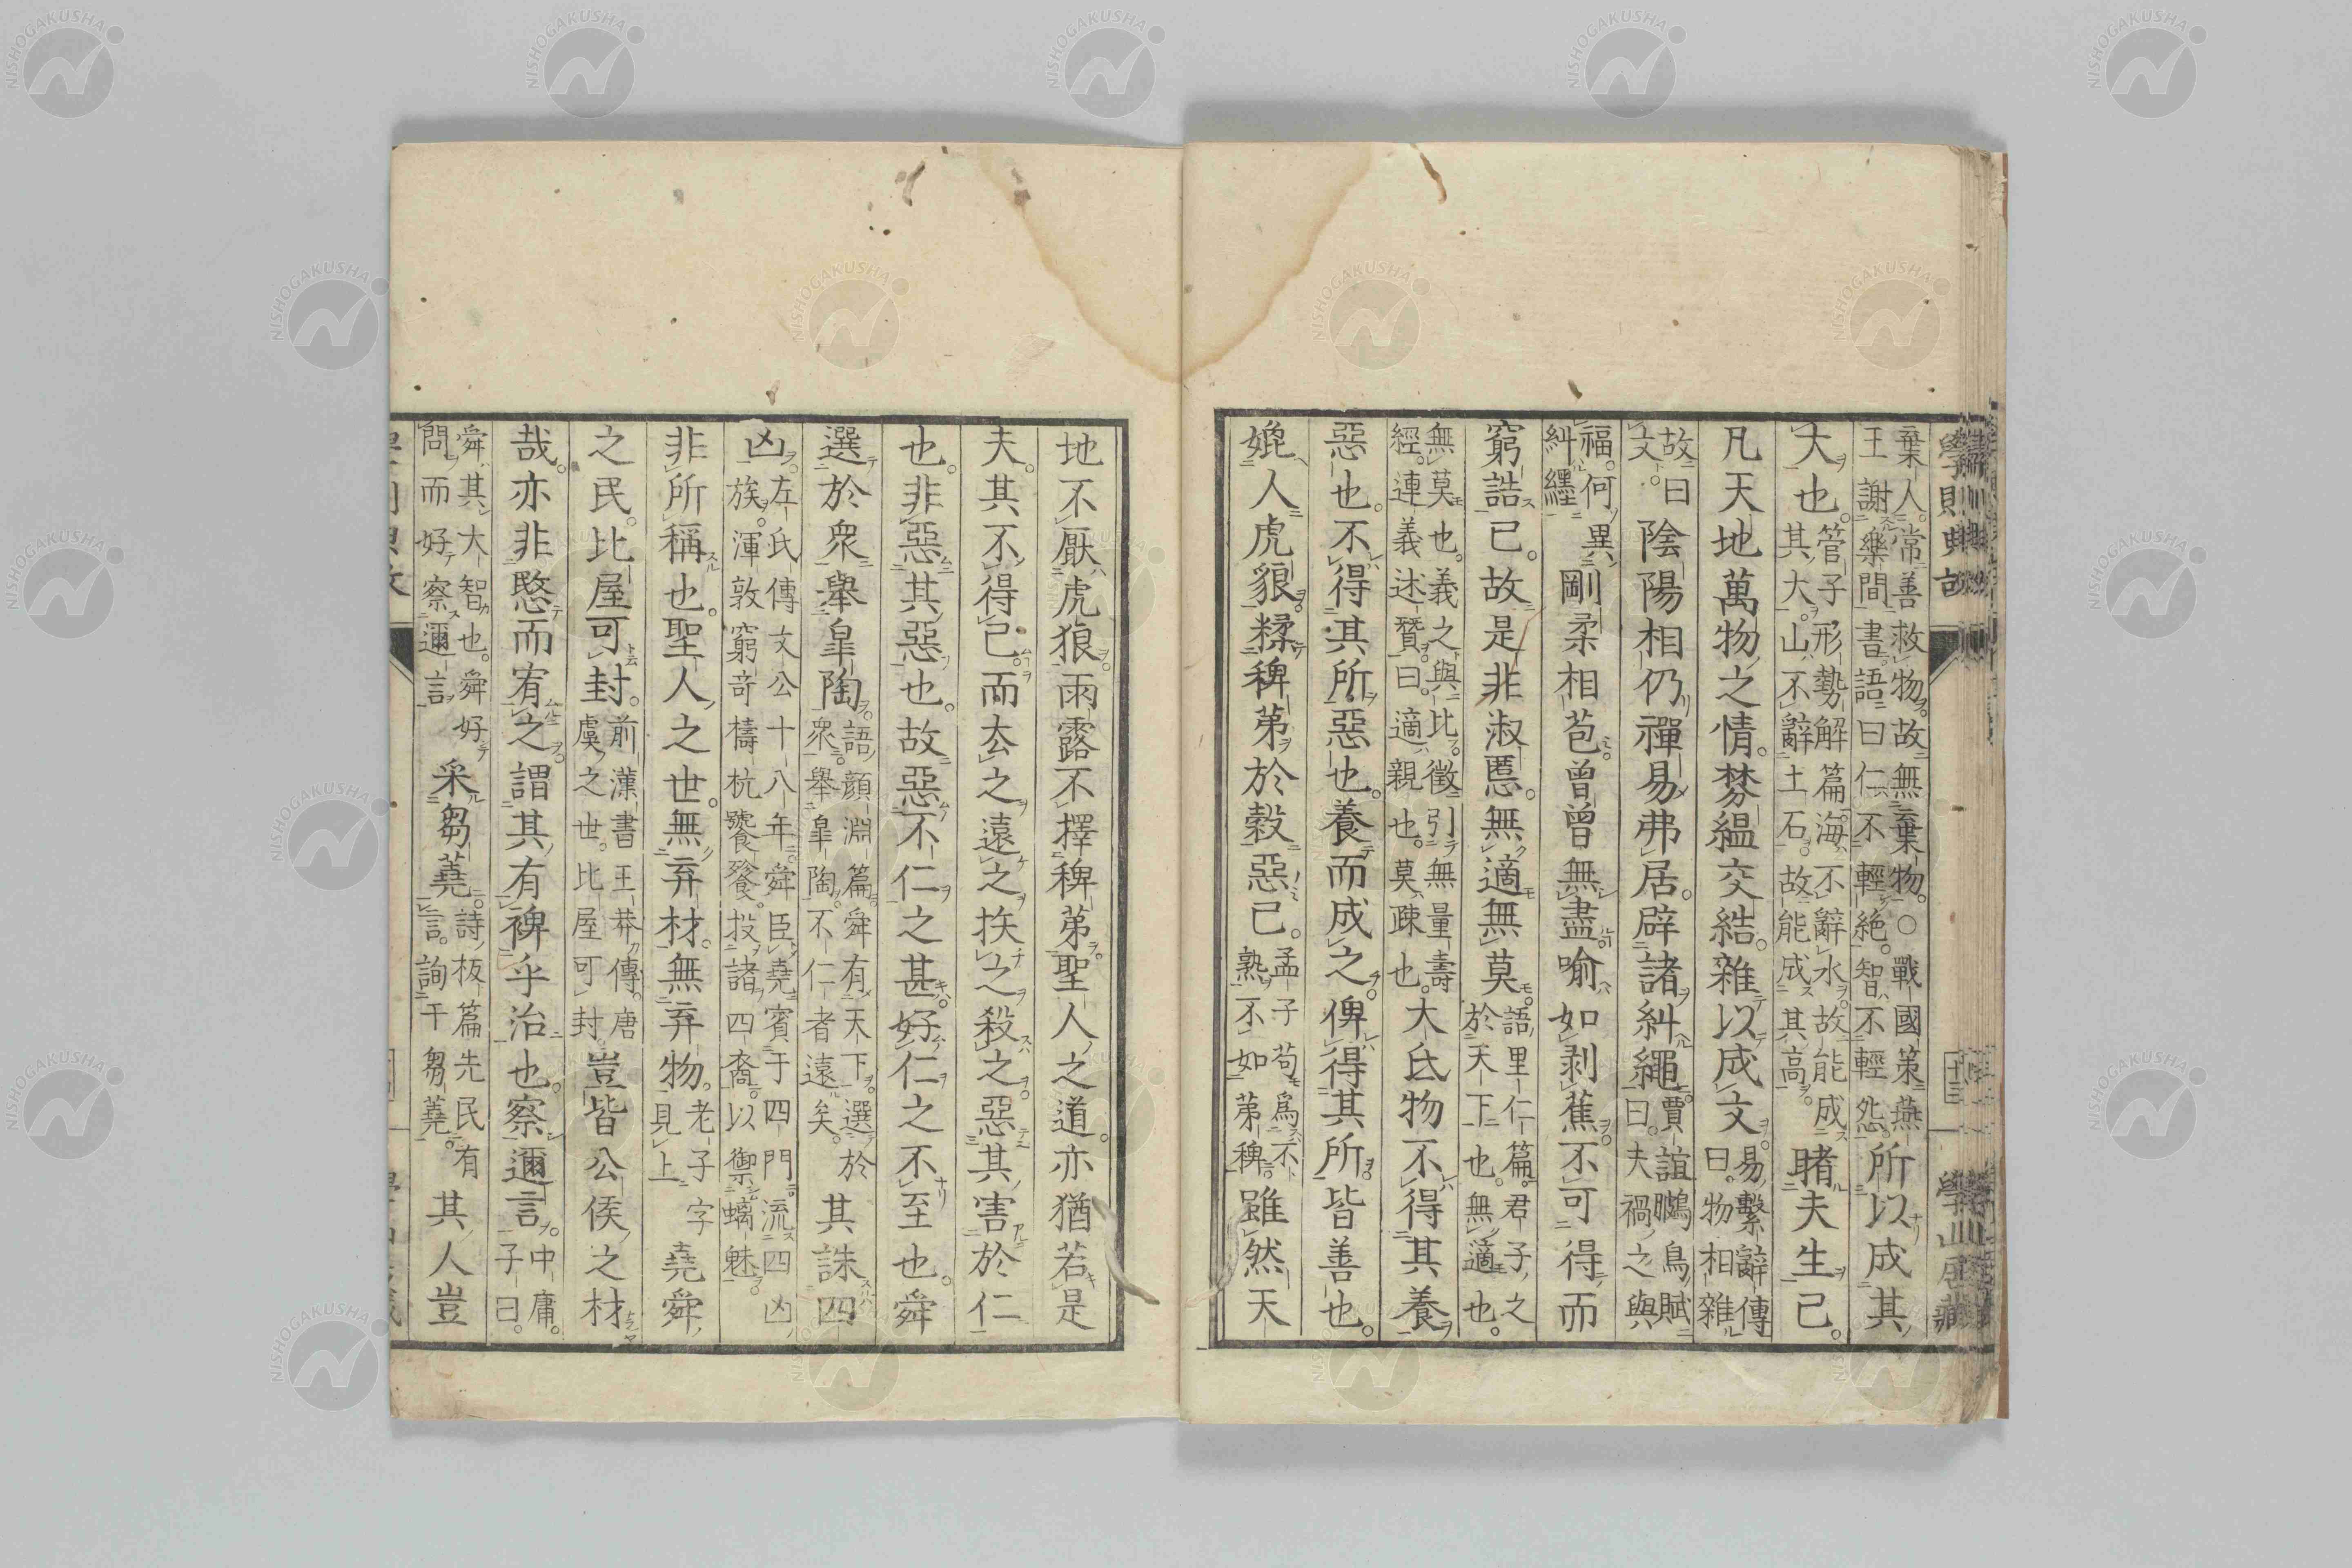 棄人。常善救物。故無棄物。○戰國策燕
王謝樂間書語曰仁不輕絕。智不輕怨。所以成其
大也。管子形勢解篇海不辭水。故能成
其大。山不辭土石。故能成其高。睹夫生已。
凡天地萬物之情。棼縕交結。雜以成文。易繫辭傳
曰。物相雜
故曰
文。陰陽相仍禪易弗居。辟諸糾繩。賈誼鵩鳥賦
曰。夫禍之與
福。何異
糾纆。剛柔相苞。曾曾無盡喻如剥蕉。不可得而
窮詰已。故是非淑慝。無適無莫。語里仁篇。君子之
於天下也。無適也。
無莫也。義之與比。徵引無量壽
經。連義述贊。曰。適親也。莫疎也。大氐物不得其養
惡也。不得其所惡也。養而成之。俾得其所。皆善也。
媲人虎貌糅稗苐於穀惡已。孟子苟爲不
熟。不如苐稗。雖然天
地不厭虎狼。雨露不擇稗苐。聖人之道。亦猶若是
夫。其不得已。而厺之遠之抶之殺之。惡其害於仁
也。非惡其惡也。故惡不仁之甚。好仁之不至也。舜
選於衆舉皐陶。語顔淵篇。舜有天下。選於
衆。舉皐陶。不仁者遠矣。其誅四
凶。左氏傳文公十八年。舜臣堯賓于四門。流四凶
族。渾敦窮奇檮杌饕餮。投諸四裔。以禦螭魅。
非所稱也。聖人之世。無弃材。無弃物。老子字
見上堯舜
之民。比屋可封。前漢書王莽傳。唐
虞之世。比屋可封。豈皆公侯之材
哉。亦非愍而宥之。謂其有裨乎治也。察邇言。中庸。
子曰。
舜其大智也。舜好
問而好察邇言采芻蕘。詩板篇先民有
言。詢于芻蕘。其人豈
學則典詁
十三
學山居藏